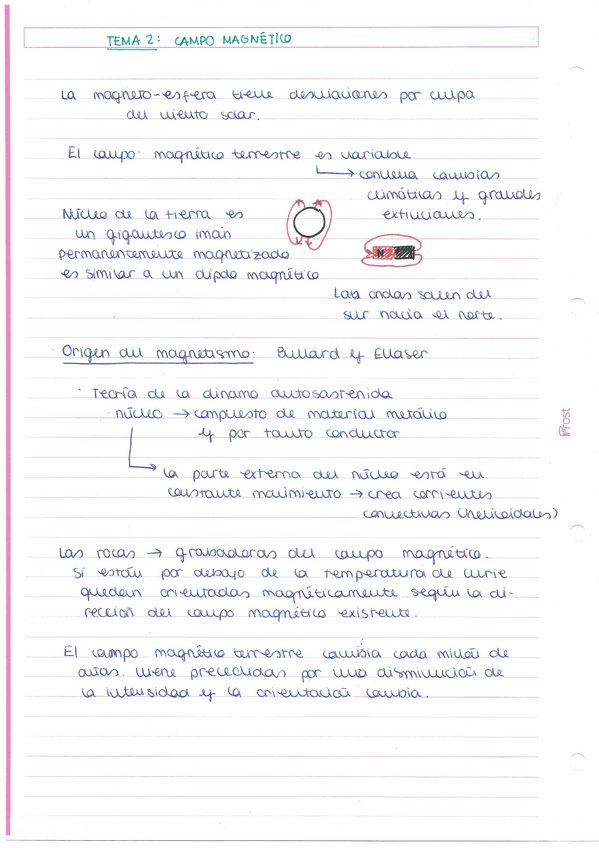 TEMA 2: CAMPO MAGNÉTICO
La magneto-esfera tiene desviaciones por culpa
del viento solar.
El campo magnético terrestre es variable
→ conlleva cambias
climáticas y grandes
extinciones.
Núcleo de la tierra es
un gigantesco imán
permanentemente magnetizado
es similar a un dipolo magnético
N
Lats ondas salen del
sur hacia el norte.
Origen del magnetismo: Bullard y Ellaser
· Teoría de la dinamo autosostenida
núcleo → compuesto de material metálico
y por tanto conductor
→ La parte externa del núcleo está en
constante movimiento → crea corrientes
convectivas (helicoidales)
Las rocas → grabadoras del campo magnético.
Si están por debajo de la temperatura de curie
quedan orientadas magnéticamente según la di-
rección del campo magnético existente.
El campo magnético terrestre cambia cada millón de
años. Viene precedidas por una disminución de
la intensidad y la orientación cambia.
Prost